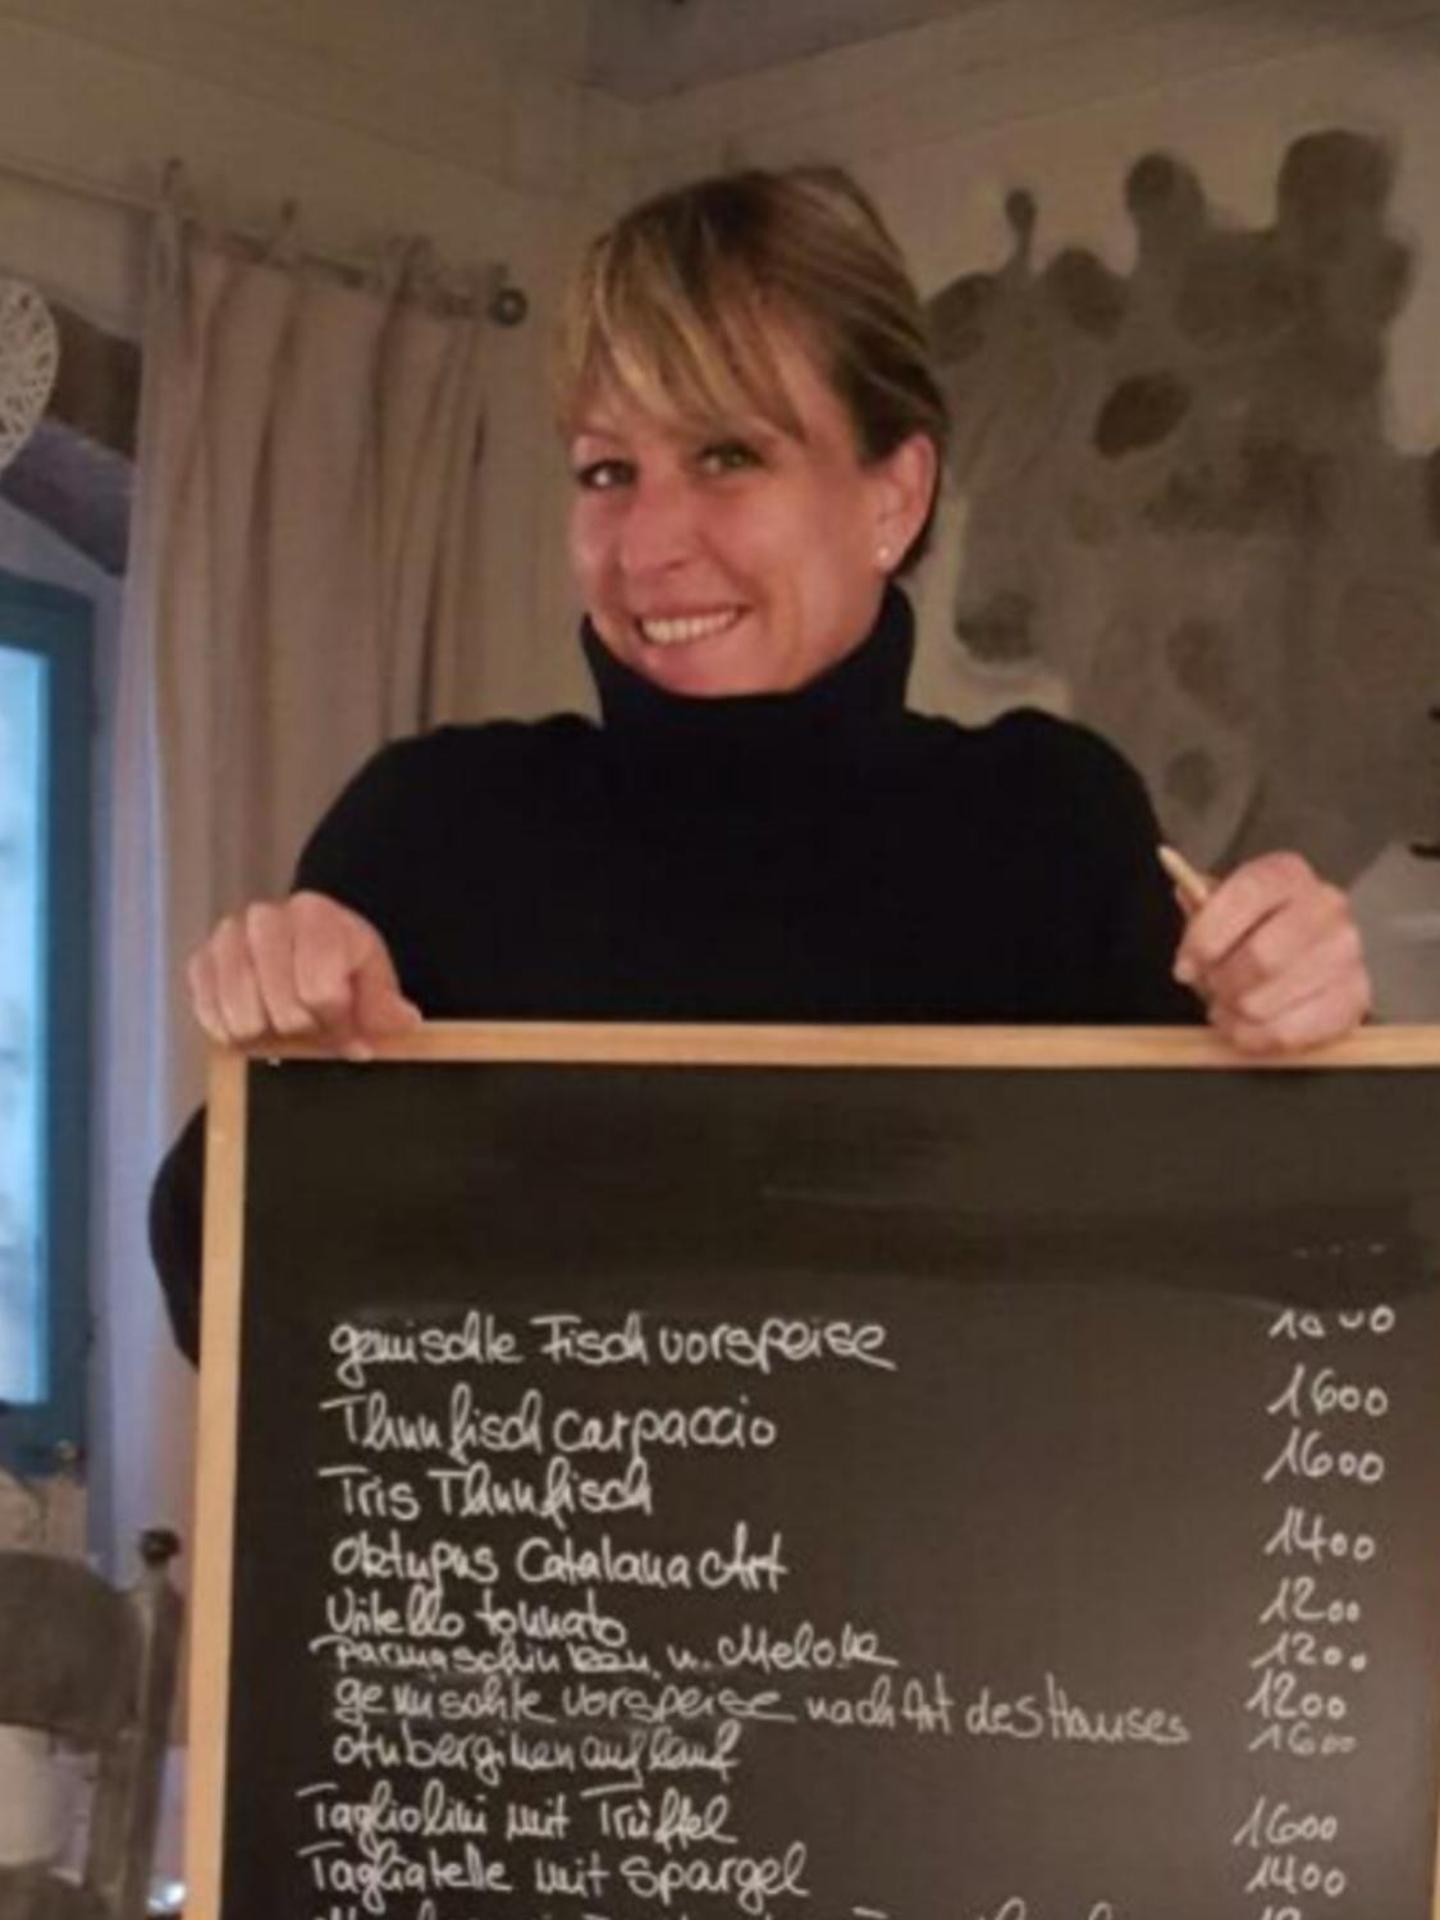 gemischte Fisch vorspeise
Thunfisch carpaccio 1600
Tris Thunfisch 1600
Oktupus Catalana Art 1400
Vitello tonnato 1200
Parmaschinken Melone 1200
gemischte vorspeise nach Art des Hauses 1200
Auberginenauflauf 1600
Tagliolini mit Trüffel 1600
Tagliatelle mit Spargel 1400